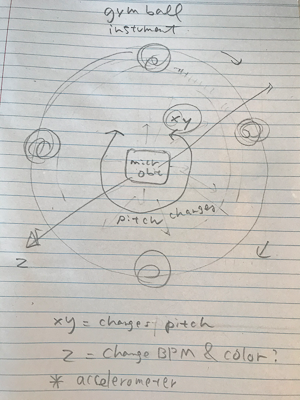 gymball
instument
xy
micro
pitch changes
z
xy = changes pitch
z = change BPM & color?
* accelerometer